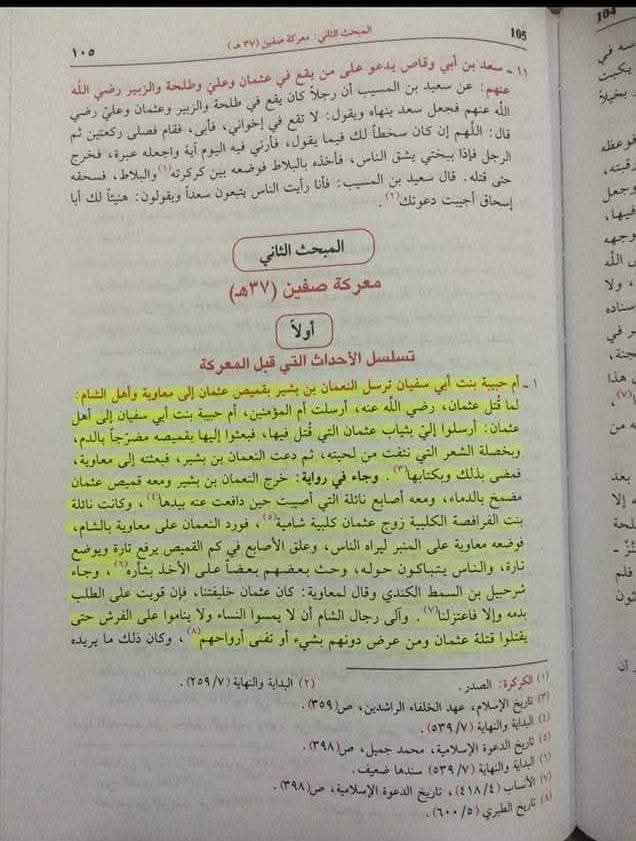 105
المبحث الثاني: معركة صفين (٣٧ هـ)
١٠٥
١١ - سعد بن أبي وقاص يدعو على من يقع في عثمان وعلي وطلحة والزبير رضي الله
عنهم: عن سعيد بن المسيب أن رجلاً كان يقع في طلحة والزبير وعثمان وعلي رضي
الله عنهم فجعل سعد ينهاه ويقول: لا تقع في إخواني، فأبى، فقام فصلى ركعتين ثم
قال: اللهم إن كان سخطاً لك فيما يقول، فأرني فيه اليوم آية واجعله عبرة، فخرج
الرجل فإذا ببختي يشق الناس، فأخذه بالبلاط فوضعه بين كركرته(١) والبلاط، فسحقه
حتى قتله. قال سعيد بن المسيب: فأنا رأيت الناس يتبعون سعداً ويقولون: هنيئاً لك أبا
إسحاق أجيبت دعوتك(٢).
المبحث الثاني
معركة صفين (٣٧هـ)
أولاً
تسلسل الأحداث التي قبل المعركة
١ - أم حبيبة بنت أبي سفيان ترسل النعمان بن بشير بقميص عثمان إلى معاوية وأهل الشام:
لما قُتل عثمان، رضي الله عنه، أرسلت أم المؤمنين، أم حبيبة بنت أبي سفيان إلى أهل
عثمان: أرسلوا إليّ بثياب عثمان التي قُتل فيها، فبعثوا إليها بقميصه مضرّجاً بالدم،
وبخصلة الشعر التي نتفت من لحيته، ثم دعت النعمان بن بشير، فبعثته إلى معاوية،
فمضى بذلك وبكتابها(٣). وجاء في رواية: خرج النعمان بن بشير ومعه قميص عثمان
مضمخ بالدماء، ومعه أصابع نائلة التي أصيبت حين دافعت عنه بيدها(٤)، وكانت نائلة
بنت الفرافصة الكلبية زوج عثمان كلبية شامية(٥)، فورد النعمان على معاوية بالشام،
فوضعه معاوية على المنبر ليراه الناس، وعلق الأصابع في كم القميص يرفع تارة ويوضع
تارة، والناس يتباكون حوله، وحث بعضهم بعضاً على الأخذ بثأره(٦)، وجاء
شرحبيل بن السمط الكندي وقال لمعاوية: كان عثمان خليفتنا، فإن قويت على الطلب
بدمه وإلا فاعتزلنا(٧). وآلى رجال الشام أن لا يمسوا النساء ولا يناموا على الفرش حتى
يقتلوا قتلة عثمان ومن عرض دونهم بشيء أو تفنى أرواحهم(٨)، وكان ذلك ما يريده
(١) الكركرة: الصدر.
(٢) البداية والنهاية (٢٥٩/٧).
(٣) تاريخ الإسلام، عهد الخلفاء الراشدين، ص(٣٥٩).
(٤) البداية والنهاية (٥٣٩/٧).
(٥) تاريخ الدعوة الإسلامية، محمد جميل، ص(٣٩٨).
(٦) البداية والنهاية (٥٣٩/٧) سندها ضعيف.
(٧) الأنساب (٤١٨/٤)، تاريخ الدعوة الإسلامية، ص(٣٩٨).
(٨) تاريخ الطبري (٦٠٠/٥).
104